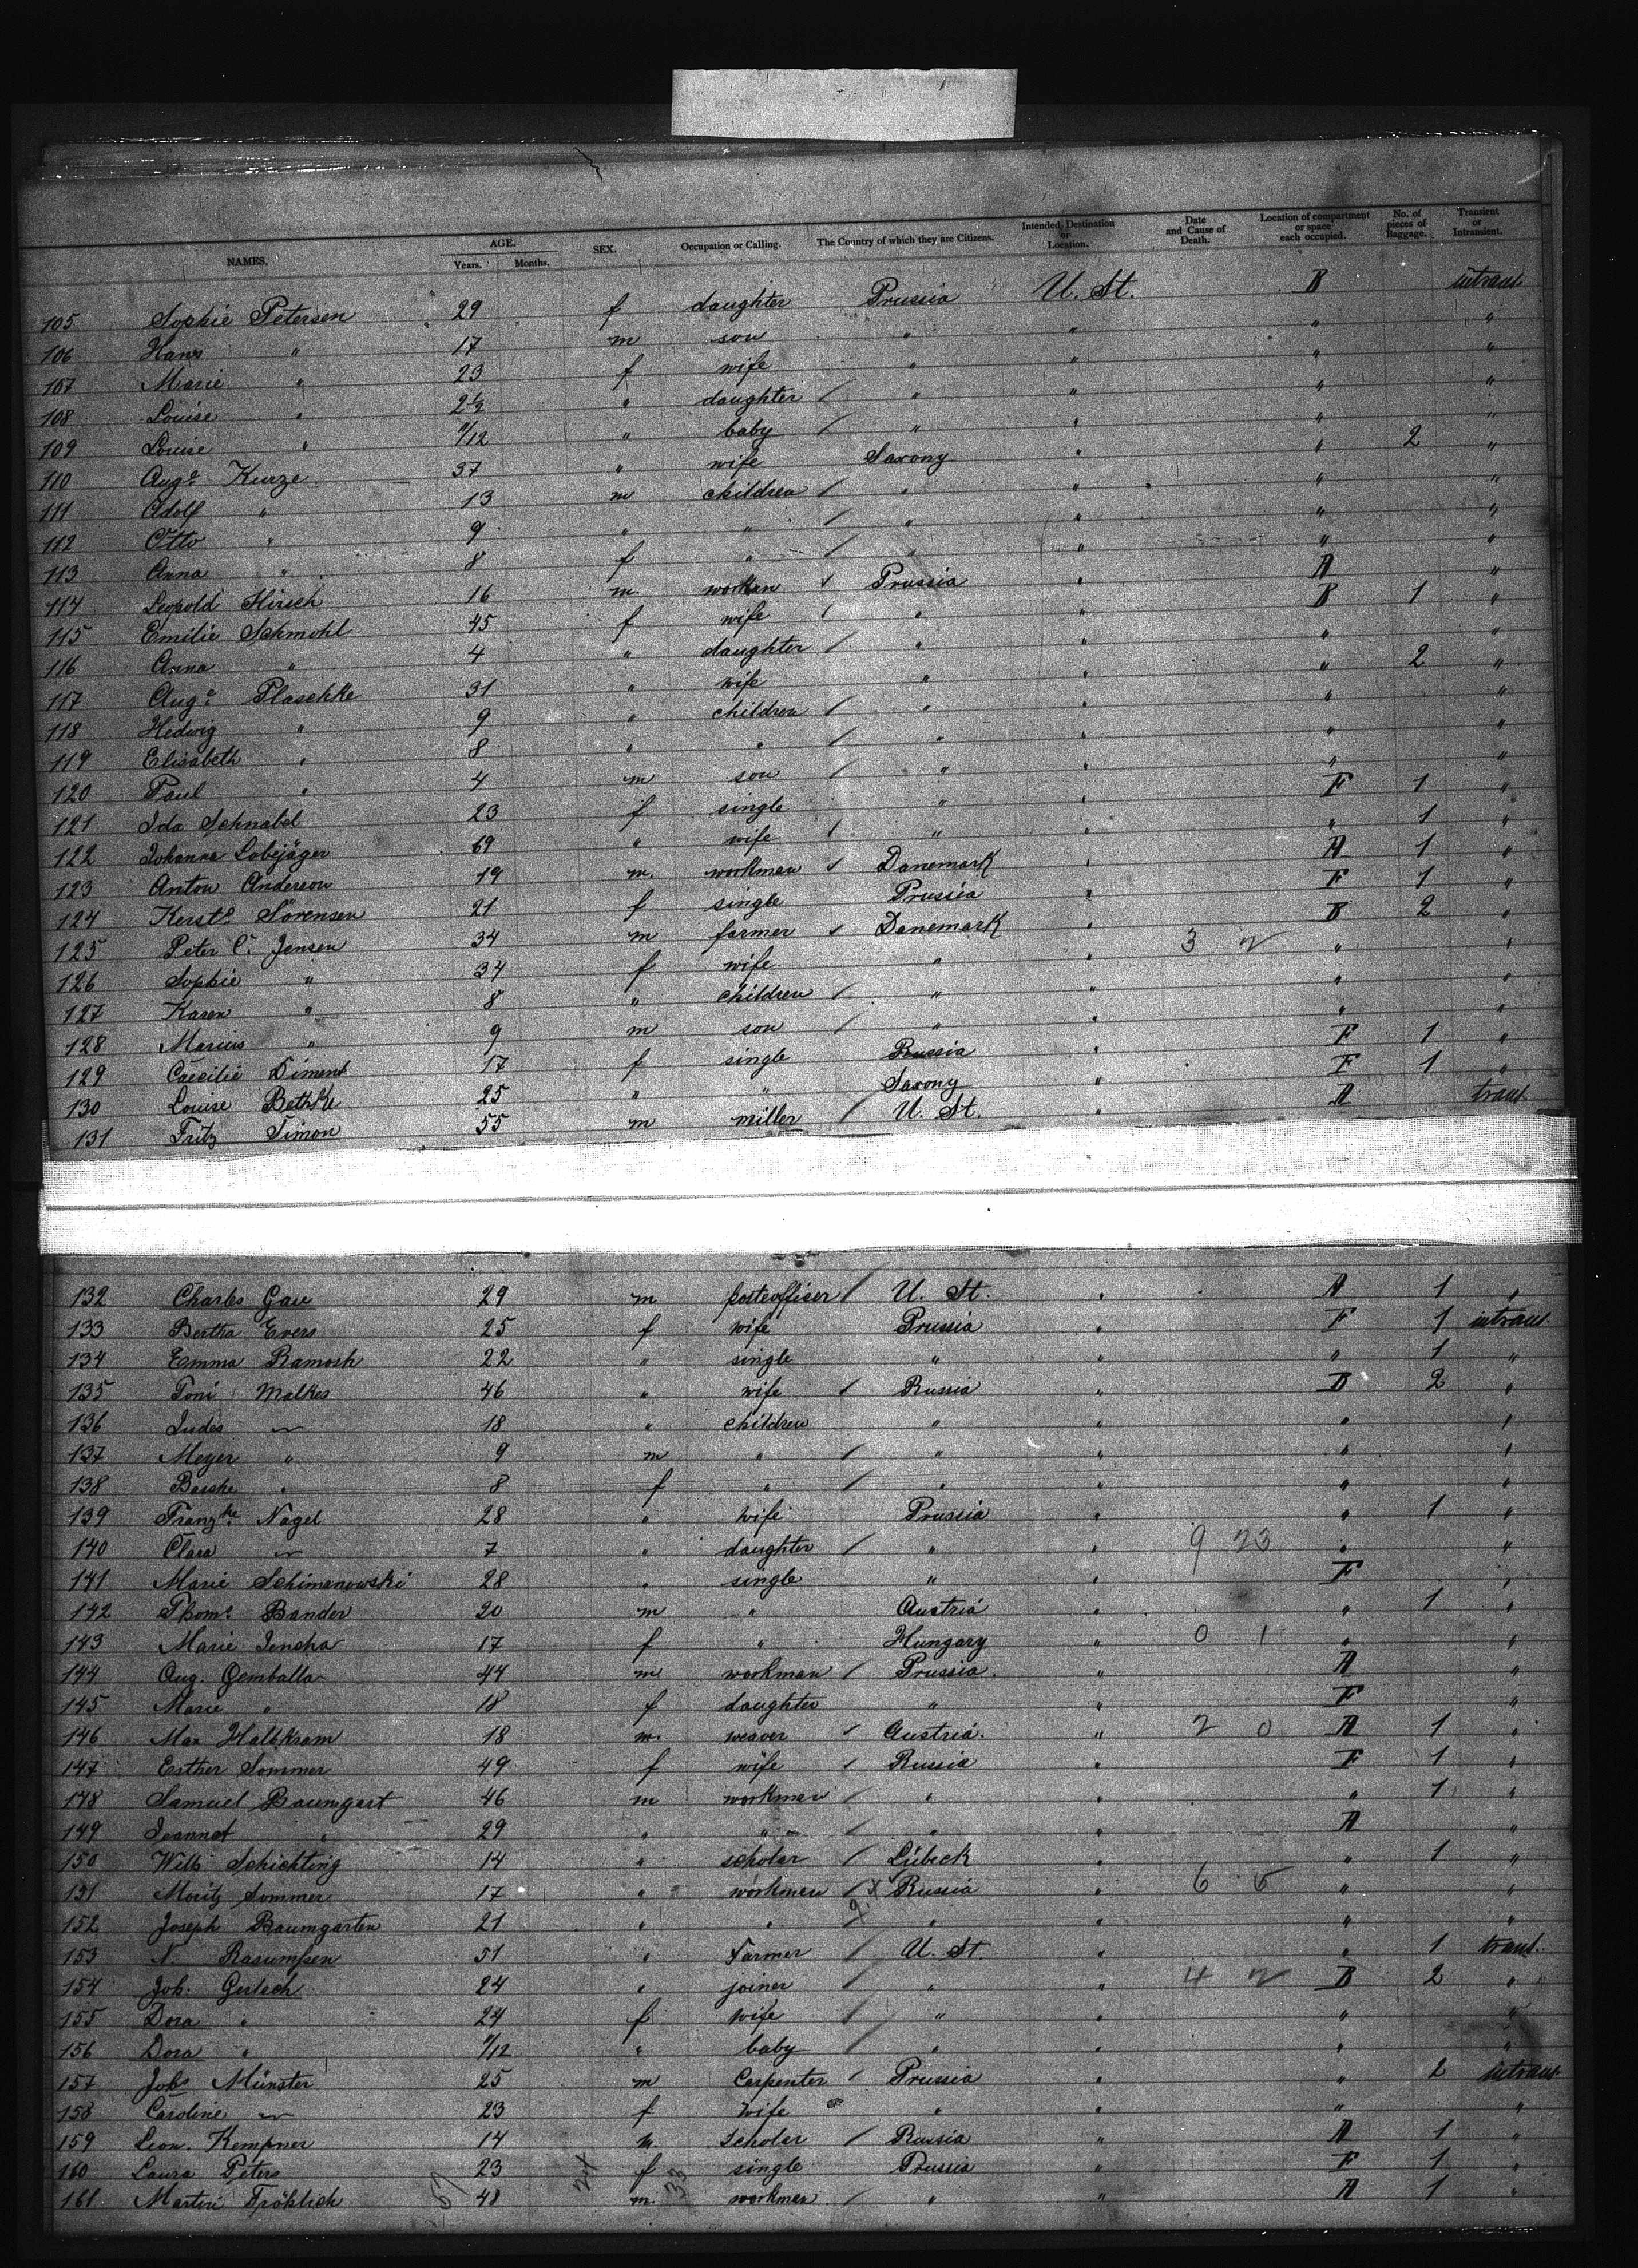 NAMES. AGE. Years. Months. SEX. Occupation or Calling. The Country of which they are Citizens. Intended Destination or Location. Date and Cause of Death. Location of compartment or space each occupied. No. of pieces of Baggage. Transient or Intransient.
105 Sophie Petersen 29 f daughter Prussia U. St. B intrans
106 Hans " 17 m son " " " "
107 Marie " 23 f wife " " " "
108 Louise " 2½ " daughter / " " " "
109 Louise " 11/12 " baby / " " " "
110 Aug.e Kurze 37 " wife Saxony " " 2 "
111 Adolf " 13 m children / " " " "
112 Otto " 9 " " / " " " "
113 Anna " 8 f " / " " " "
114 Leopold Hirsch 16 m. workman / Prussia " A "
115 Emilie Schmohl 45 f wife / " " B 1 "
116 Anna " 4 " daughter / " " " "
117 Aug.e Plaschke 31 " wife " " " 2 "
118 Hedwig " 9 " children / " " " "
119 Elisabeth " 8 " " / " " " "
120 Paul " 4 m son / " " " "
121 Ida Schnabel 23 f single " " F 1 "
122 Johanna Lobejäger 69 " wife / " " " 1 "
123 Anton Anderson 19 m. workman / Danemark " A 1 "
124 Kerst.e Sörensen 21 f single Prussia " F 1 "
125 Peter C. Jensen 34 m farmer / Danemark " B 2 "
126 Sophie " 34 f wife " " 3 2 " "
127 Karen " 8 " children / " " " "
128 Marius " 9 m son / " " " "
129 Caecilie Diment 17 f single Russia " F 1 "
130 Louise Bethke 25 " " Saxony " F 1 "
131 Fritz Timon 55 m miller / U. St. " A trans.
132 Charles Gau 29 m posteoffiser / U. St. " A 1 "
133 Bertha Evers 25 f wife Prussia " F 1 intrans.
134 Emma Ramosh 22 " single " " " 1 "
135 Toni Malkes 46 " wife / Russia " B 2 "
136 Judes " 18 " children " " " "
137 Meyer " 9 m " / " " " "
138 " 8 f " / " " " "
139 Franz.ke Nagel 28 " wife Prussia " " 1 "
140 Clara " 7 " daughter / " " 9 23 " "
141 Marie Schimanowski 28 " single " " F "
142 Thom.s Bander 20 m " Austria " " 1 "
143 Marie Jencha 17 f " Hungary " 0 1 " "
144 Aug. Gemballa 44 m workman / Prussia. " A "
145 Marie " 18 f daughter " " F "
146 Max Halbkram 18 m. weaver / Austria. " 2 0 A 1 "
147 Esther Sommer 49 f wife / Russia " F 1 "
148 Samuel Baumgart 46 m workman / " " " 1 "
149 Jeannet " 29 " " / " " A "
150 Wilh. Schichting 14 " scholar / Lübeck " " 1 "
151 Moritz Sommer 17 " workman / X Russia " 6 5 " "
152 Joseph Baumgarten 21 " " / " " " "
153 N. Rasumssen 51 " Farmer / U. St. " " 1 trans.
154 Joh. Gerlach 24 " joiner / " " 4 2 B 2 "
155 Dora " 24 f wife / " " " "
156 Dora " 11/12 " baby / " " " "
157 Joh.s Münster 25 m Carpenter / Prussia " " 2 intrans
158 Caroline " 23 f wife " " " "
159 Leon. Kempner 14 m. scholar / Russia " A 1 "
160 Laura Peters 23 f single Prussia " F 1 "
161 Martin Fröhlich 48 m. workman / " " A 1 "